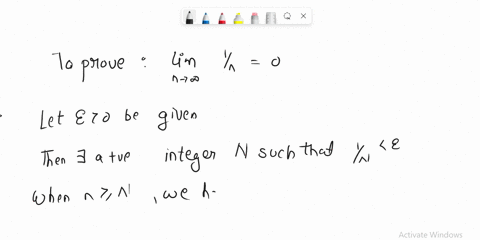 To prove : lim n→∞ 1/n = 0
Let ε>0 be given
Then ∃ a +ve integer N such that 1/N < ε
When n ≥ N , we h
Activate Windows